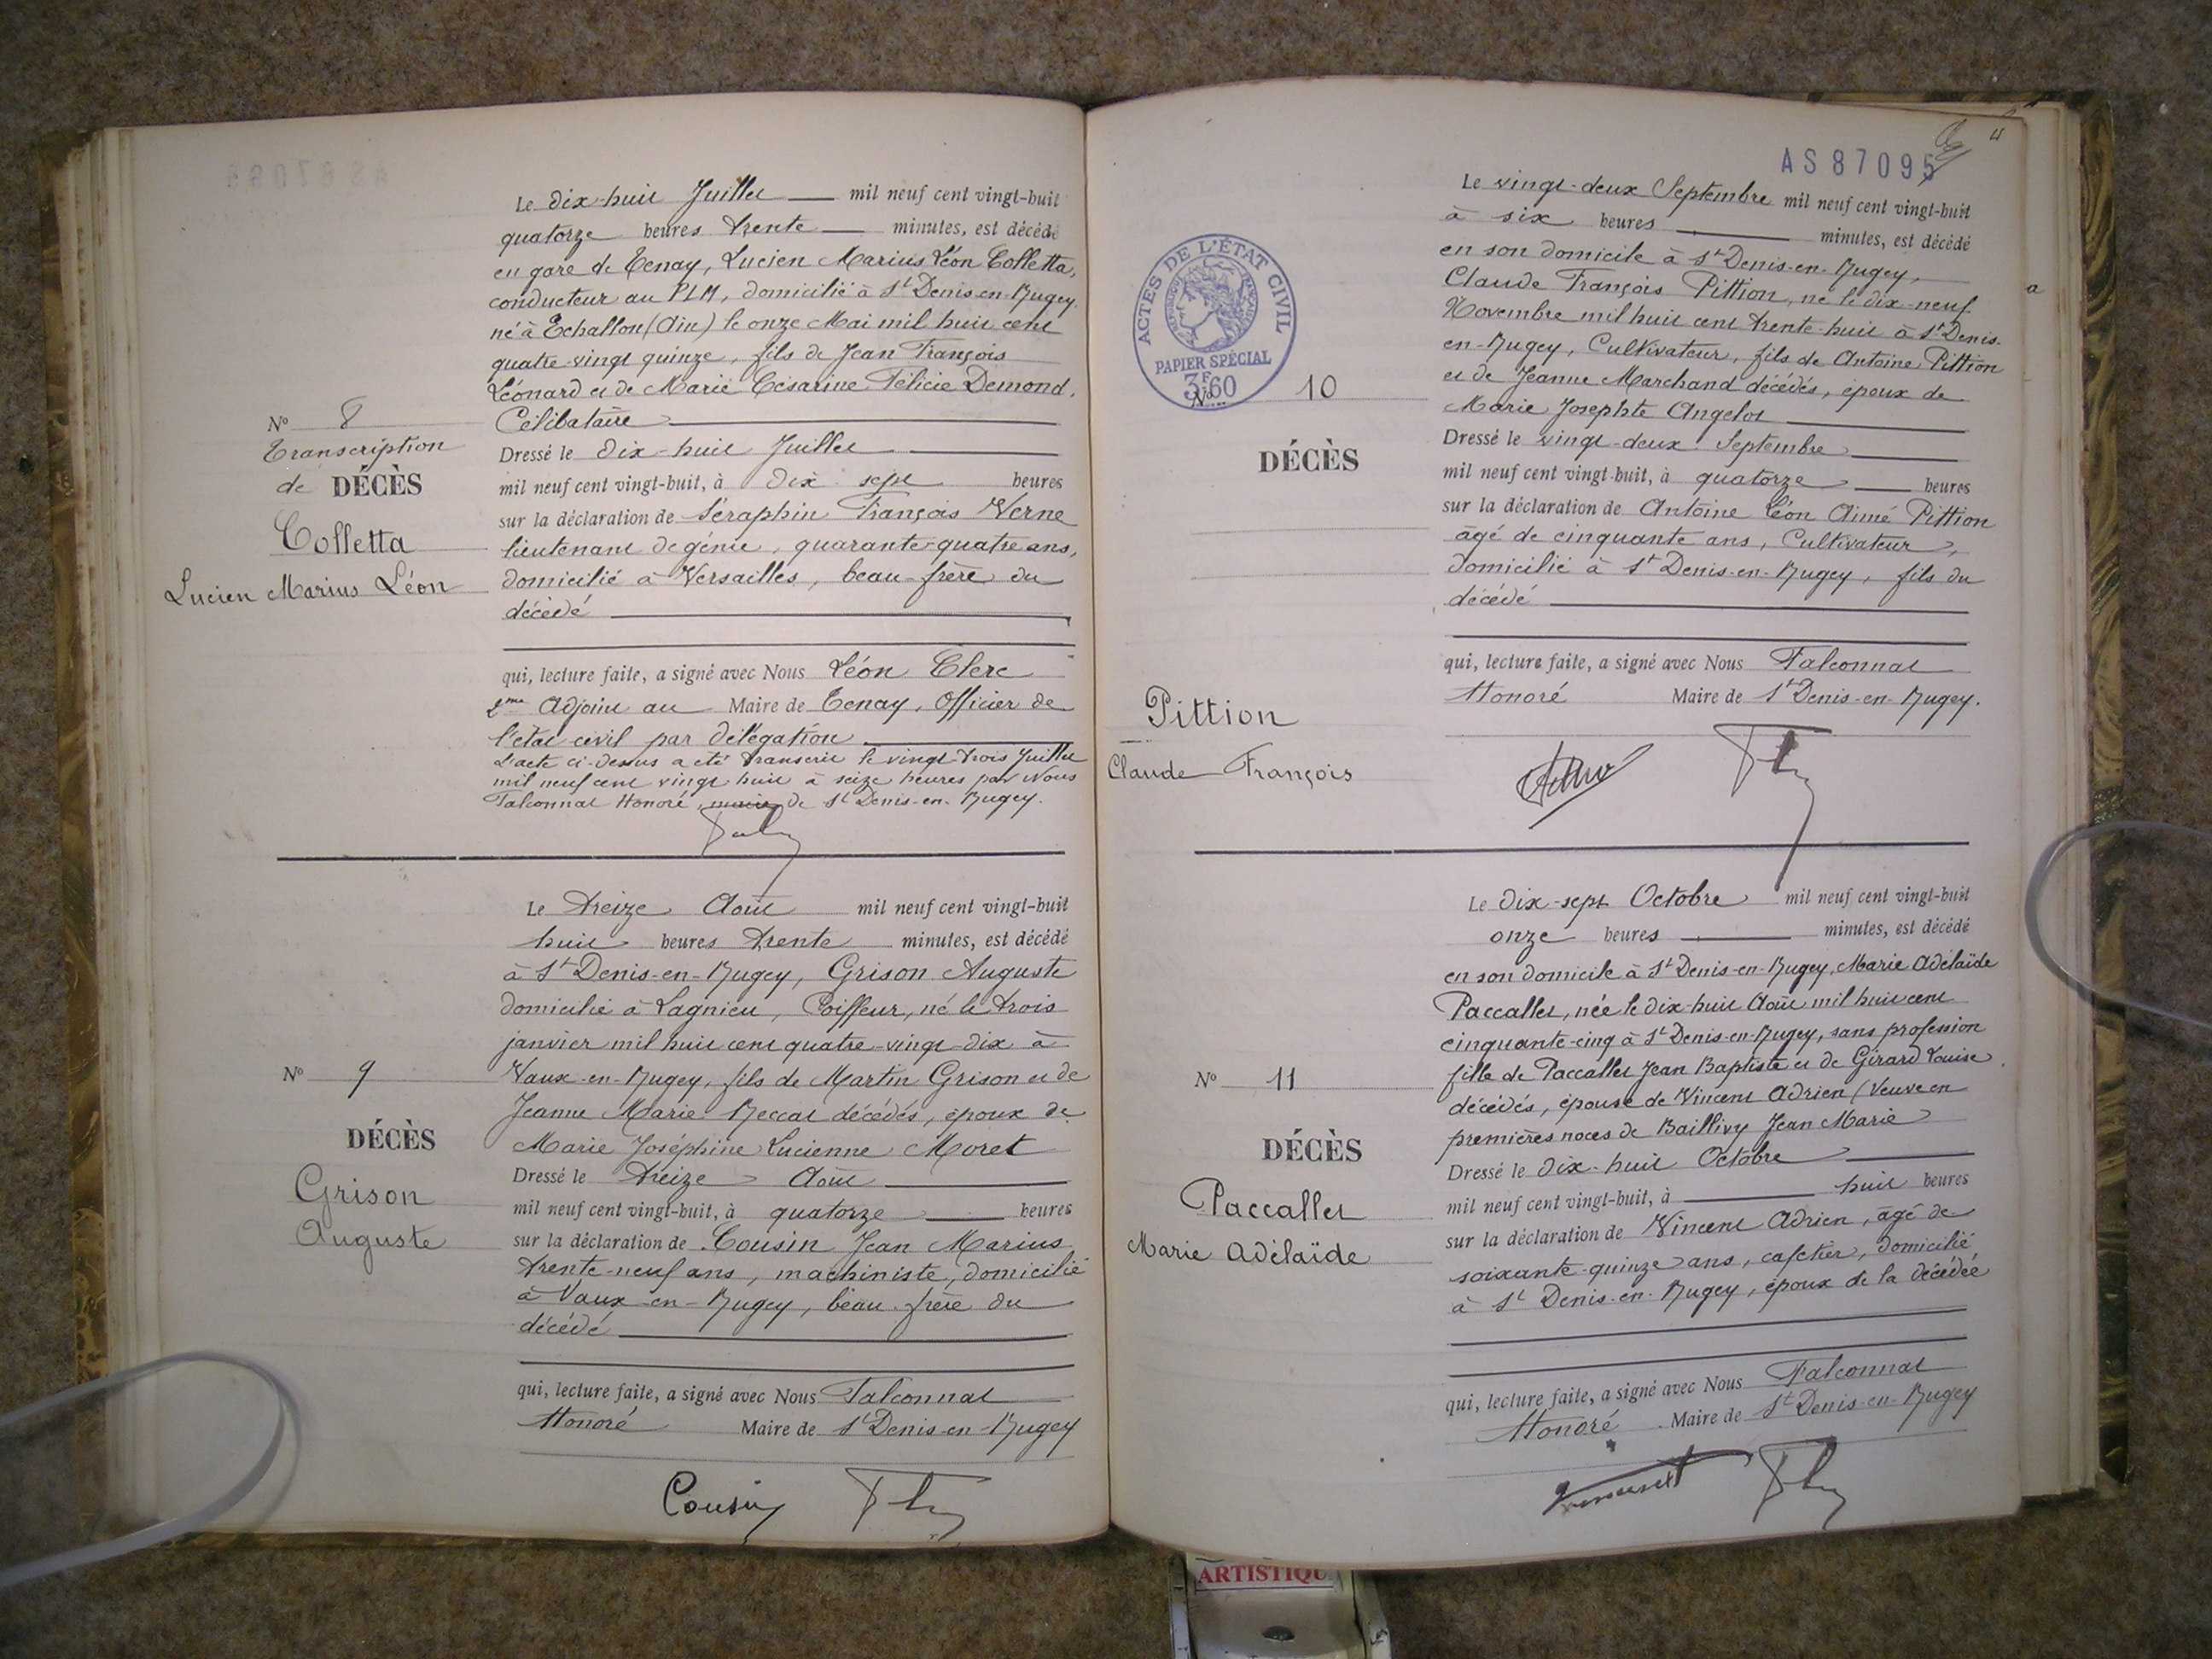 N° 8
Transcription
de DÉCÈS
Colletta
Lucien Marius Léon
Le dix-huit Juillet mil neuf cent vingt-huit
quatorze heures trente minutes, est décédé
en gare de Tenay, Lucien Marius Léon Colletta,
conducteur au PLM, domicilié à St Denis-en-Bugey
né à Echallon (Ain) le onze Mai mil huit cent
quatre-vingt quinze, fils de Jean François
Léonard et de Marie Césarine Félicie Demond.
Célibataire
Dressé le dix-huit Juillet
mil neuf cent vingt-huit, à dix sept heures
sur la déclaration de Séraphin François Verne
lieutenant de génie, quarante-quatre ans,
domicilié à Versailles, beau-frère du
décédé
qui, lecture faite, a signé avec Nous Léon Clerc
2me Adjoint au Maire de Tenay, Officier de
l'état civil par délégation
L'acte ci-dessus a été transcrit le vingt-trois Juillet
mil neuf cent vingt huit à seize heures par Nous
Falconnat Honoré, maire de St Denis-en-Bugey.
N° 9
DÉCÈS
Grison
Auguste
Le treize Août mil neuf cent vingt-huit
huit heures trente minutes, est décédé
à St Denis-en-Bugey, Grison Auguste
domicilié à Lagnieu, Coiffeur, né le trois
janvier mil huit cent quatre-vingt-dix à
Vaux-en-Bugey, fils de Martin Grison et de
Jeanne Marie Beccat décédés, époux de
Marie Joséphine Lucienne Moret
Dressé le treize Août
mil neuf cent vingt-huit, à quatorze heures
sur la déclaration de Cousin Jean Marius
trente-neuf ans, machiniste, domicilié
à Vaux-en-Bugey, beau-frère du
décédé
qui, lecture faite, a signé avec Nous Falconnat
Honoré Maire de St Denis-en-Bugey
Cousin
AS87095
ACTES DE L'ÉTAT CIVIL
PAPIER SPÉCIAL
3F60
N° 10
DÉCÈS
Pittion
Claude François
Le vingt-deux Septembre mil neuf cent vingt-huit
à six heures minutes, est décédé
en son domicile à St Denis-en-Bugey,
Claude François Pittion, né le dix-neuf
Novembre mil huit cent trente-huit à St Denis-
en-Bugey, Cultivateur, fils de Antoine Pittion
et de Jeanne Marchand décédés, époux de
Marie Josephte Angelot
Dressé le vingt-deux Septembre
mil neuf cent vingt-huit, à quatorze heures
sur la déclaration de Antoine Léon Aimé Pittion
âgé de cinquante ans, Cultivateur,
domicilié à St Denis-en-Bugey, fils du
décédé
qui, lecture faite, a signé avec Nous Falconnat
Honoré Maire de St Denis-en-Bugey.
N° 11
DÉCÈS
Paccallet
Marie Adélaïde
Le dix-sept Octobre mil neuf cent vingt-huit
onze heures minutes, est décédé
en son domicile à St Denis-en-Bugey, Marie Adélaïde
Paccallet, née le dix-huit Août mil huit cent
cinquante-cinq à St Denis-en-Bugey, sans profession
fille de Paccallet Jean Baptiste et de Girard Louise
décédés, épouse de Vincent Adrien (Veuve en
premières noces de Baillivy Jean Marie
Dressé le dix-huit Octobre
mil neuf cent vingt-huit, à huit heures
sur la déclaration de Vincent Adrien, âgé de
soixante-quinze ans, cafetier, domicilié
à St Denis-en-Bugey, époux de la décédée
qui, lecture faite, a signé avec Nous Falconnat
Honoré Maire de St Denis-en-Bugey
ARTISTIQU